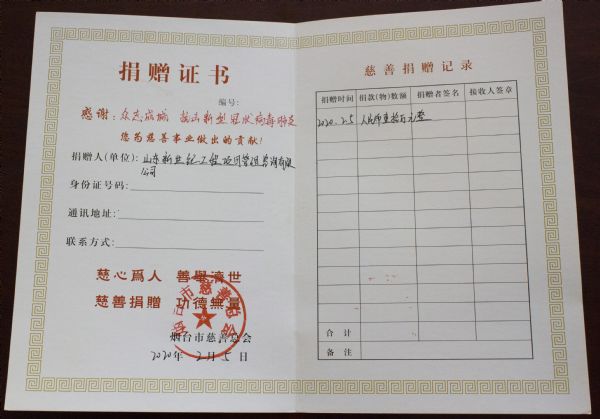 捐赠证书
编号:
感谢: 众志成城 抗击新型冠状病毒肺炎
您为慈善事业做出的贡献!
捐赠人(单位): 山东新世纪工程项目管理咨询有限
公司
身份证号码:
通讯地址:
联系方式:
慈心爲人 善舉濟世
慈善捐贈 功德無量
烟台市慈善总会
烟台市慈善总会
2020年 2月 5日
慈善捐赠记录
捐赠时间 捐款(物)数额 捐赠者签名 接收人签章
2020.2.5 人民币壹拾万元整
合计
备注